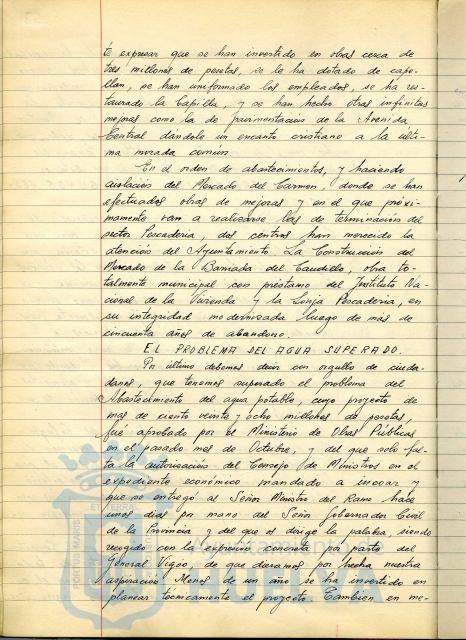 te expresar que se han invertido en obras cerca de
tres millones de pesetas, se le ha dotado de cape-
llan, se han uniformado los empleados, se ha res-
taurado la Capilla, y se han hecho otras infinitas
mejoras como la de pavimentación de la Avenida
Central dandole un encanto cristiano a la ulti-
ma morada común.
En el orden de abastecimentos, y haciendo
aislación del Mercado del Carmen, donde se han
efectuados obras de mejoras y en el que próxi-
mamente van a realizarse las de terminación del
sector Pescaderia, dos centros han merecido la
atención del Ayuntamiento. La Construcción del
Mercado de la Barriada del Caudillo, obra to-
talmente municipal con préstamo del Instituto Na-
cional de la Vivienda y la Lonja Pescaderia, en
su integridad modernizada luego de más de
cincuenta años de abandono.
EL PROBLEMA DEL AGUA SUPERADO.
Por último debemos decir con orgullo de ciuda-
danos, que tenemos superado el problema del
Abastecimiento del agua potable, cuyo proyecto de
mas de ciento veinte y ocho millones de pesetas,
fué aprobado por el Ministerio de Obras Públicas
en el pasado mes de Octubre, y del que solo fal-
ta la autorización del Consejo de Ministros en el
expediente económico mandado a incoar y
que se entregó al Señor Ministro del Ramo hace
unos dias por mano del Señor Gobernador Civil
de la Provincia y del que os dirige la palabra, siendo
recogido con la expresión concreta por parte del
General Vigon, de que dieramos por hecha nuestra
aspiración. Menos de un año se ha invertido en
planear tecnicamente el proyecto. Tambien en me-